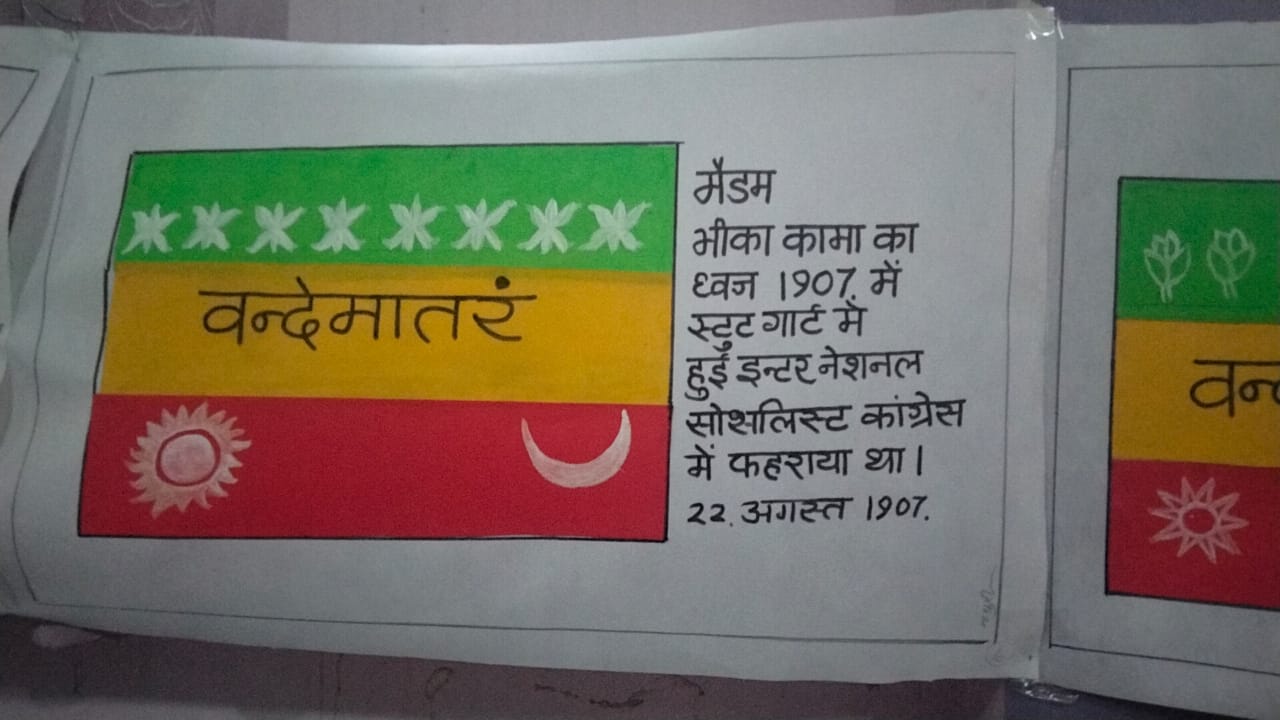 वन्देमातरं
मैडम
भीका कामा का
ध्वज 1907 में
स्टुटगार्ट में
हुई इन्टरनेशनल
सोसलिस्ट कांग्रेस
में फहराया था।
22. अगस्त 1907.
वन्